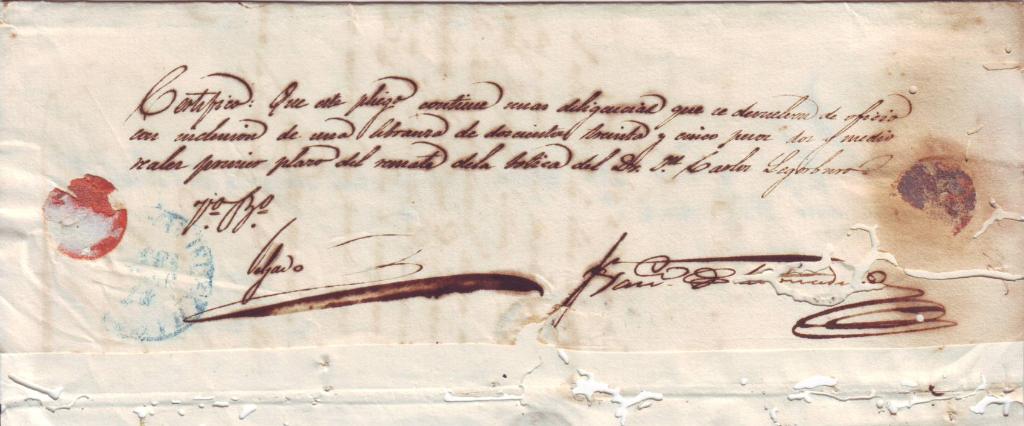 Certifico: Que este pliego contiene unas diligencias que se devuelven de oficio
con inclusion de una libranza de doscientos treinta y cinco pesos dos y medio
reales primer plazo del remate de la botica del Dr. Dn. Carlos
Vo. Bo.
Delgado
Franco. de la